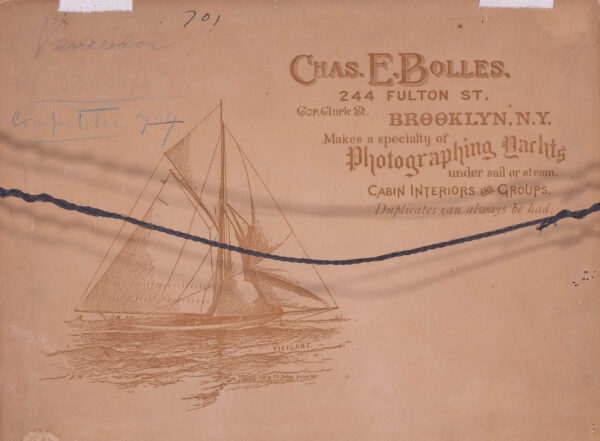 701
Vencedor
Competitor
CHAS. E. BOLLES,
244 FULTON ST,
Cor. Clark St.
BROOKLYN, N.Y.
Makes a specialty of
Photographing Yachts
under sail or steam.
CABIN INTERIORS AND GROUPS.
Duplicates can always be had.
VIGILANT.